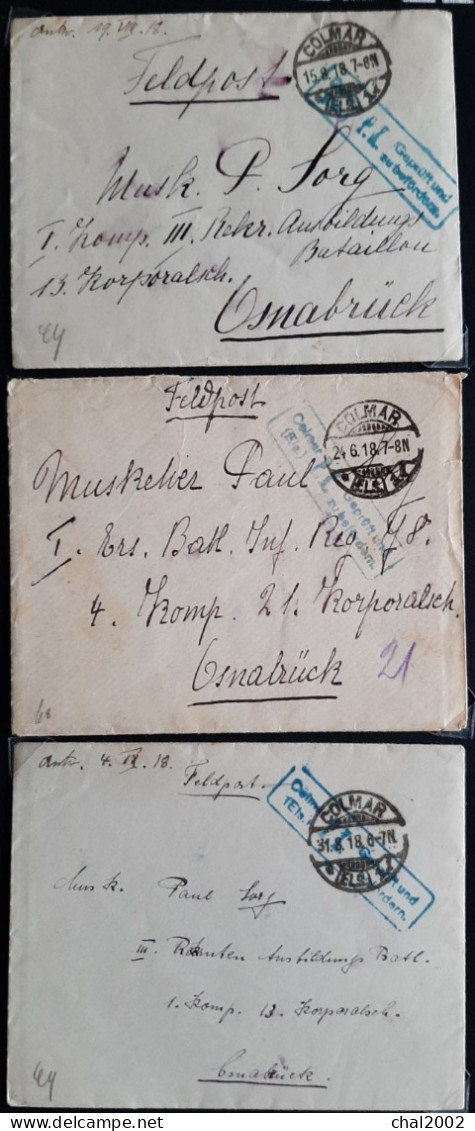 antw. 19. VIII. 18.
COLMAR
15.8.18.7-8N
(ELS.)
Feldpost
Geprüft und
zu befördern.
Musk. P. Sorg
I. Komp. III. Rekr. Ausbildungs
Bataillon
13. Korporalsch.
Osnabrück
Feldpost
COLMAR
24.6.18.7-8N
(ELS.)
Colmar
(Els.)
Geprüft und
zu befördern.
Musketier Paul
I. Ers. Batl. Inf. Reg. 78.
4. Komp. 21. Korporalsch.
Osnabrück
21
antw. 4. IX. 18.
Feldpost
COLMAR
31.8.18.6-7N
(ELS.)
Colmar
(Els.
und
Musk. Paul Sorg
III. Rekruten Ausbildungs Batl.
1. Komp. 13. Korporalsch.
Osnabrück.
http://www.delcampe.net
chal2002